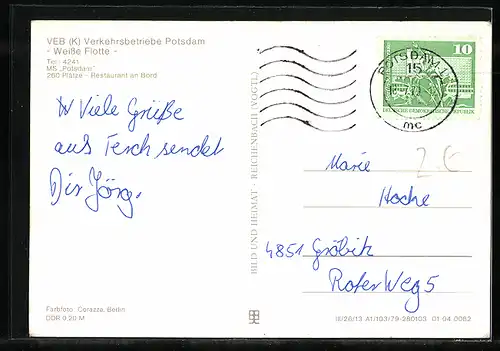 VEB (K) Verkehrsbetriebe Potsdam
- Weiße Flotte -
Tel.: 4241
MS „Potsdam“
260 Plätze - Restaurant an Bord
Viele Grüße
aus Ferch sendet
Dir Jörg.
Farbfoto: Corazza, Berlin
DDR 0,20 M
BILD UND HEIMAT - REICHENBACH (VOGTL)
10
POTSDAM
15
mc
DEUTSCHE DEMOKRATISCHE REPUBLIK
2 €
Marie
Hoche
4851 Gröbitz
Roter Weg 5
III/26/13 A1/103/79-280103 01 04 0062